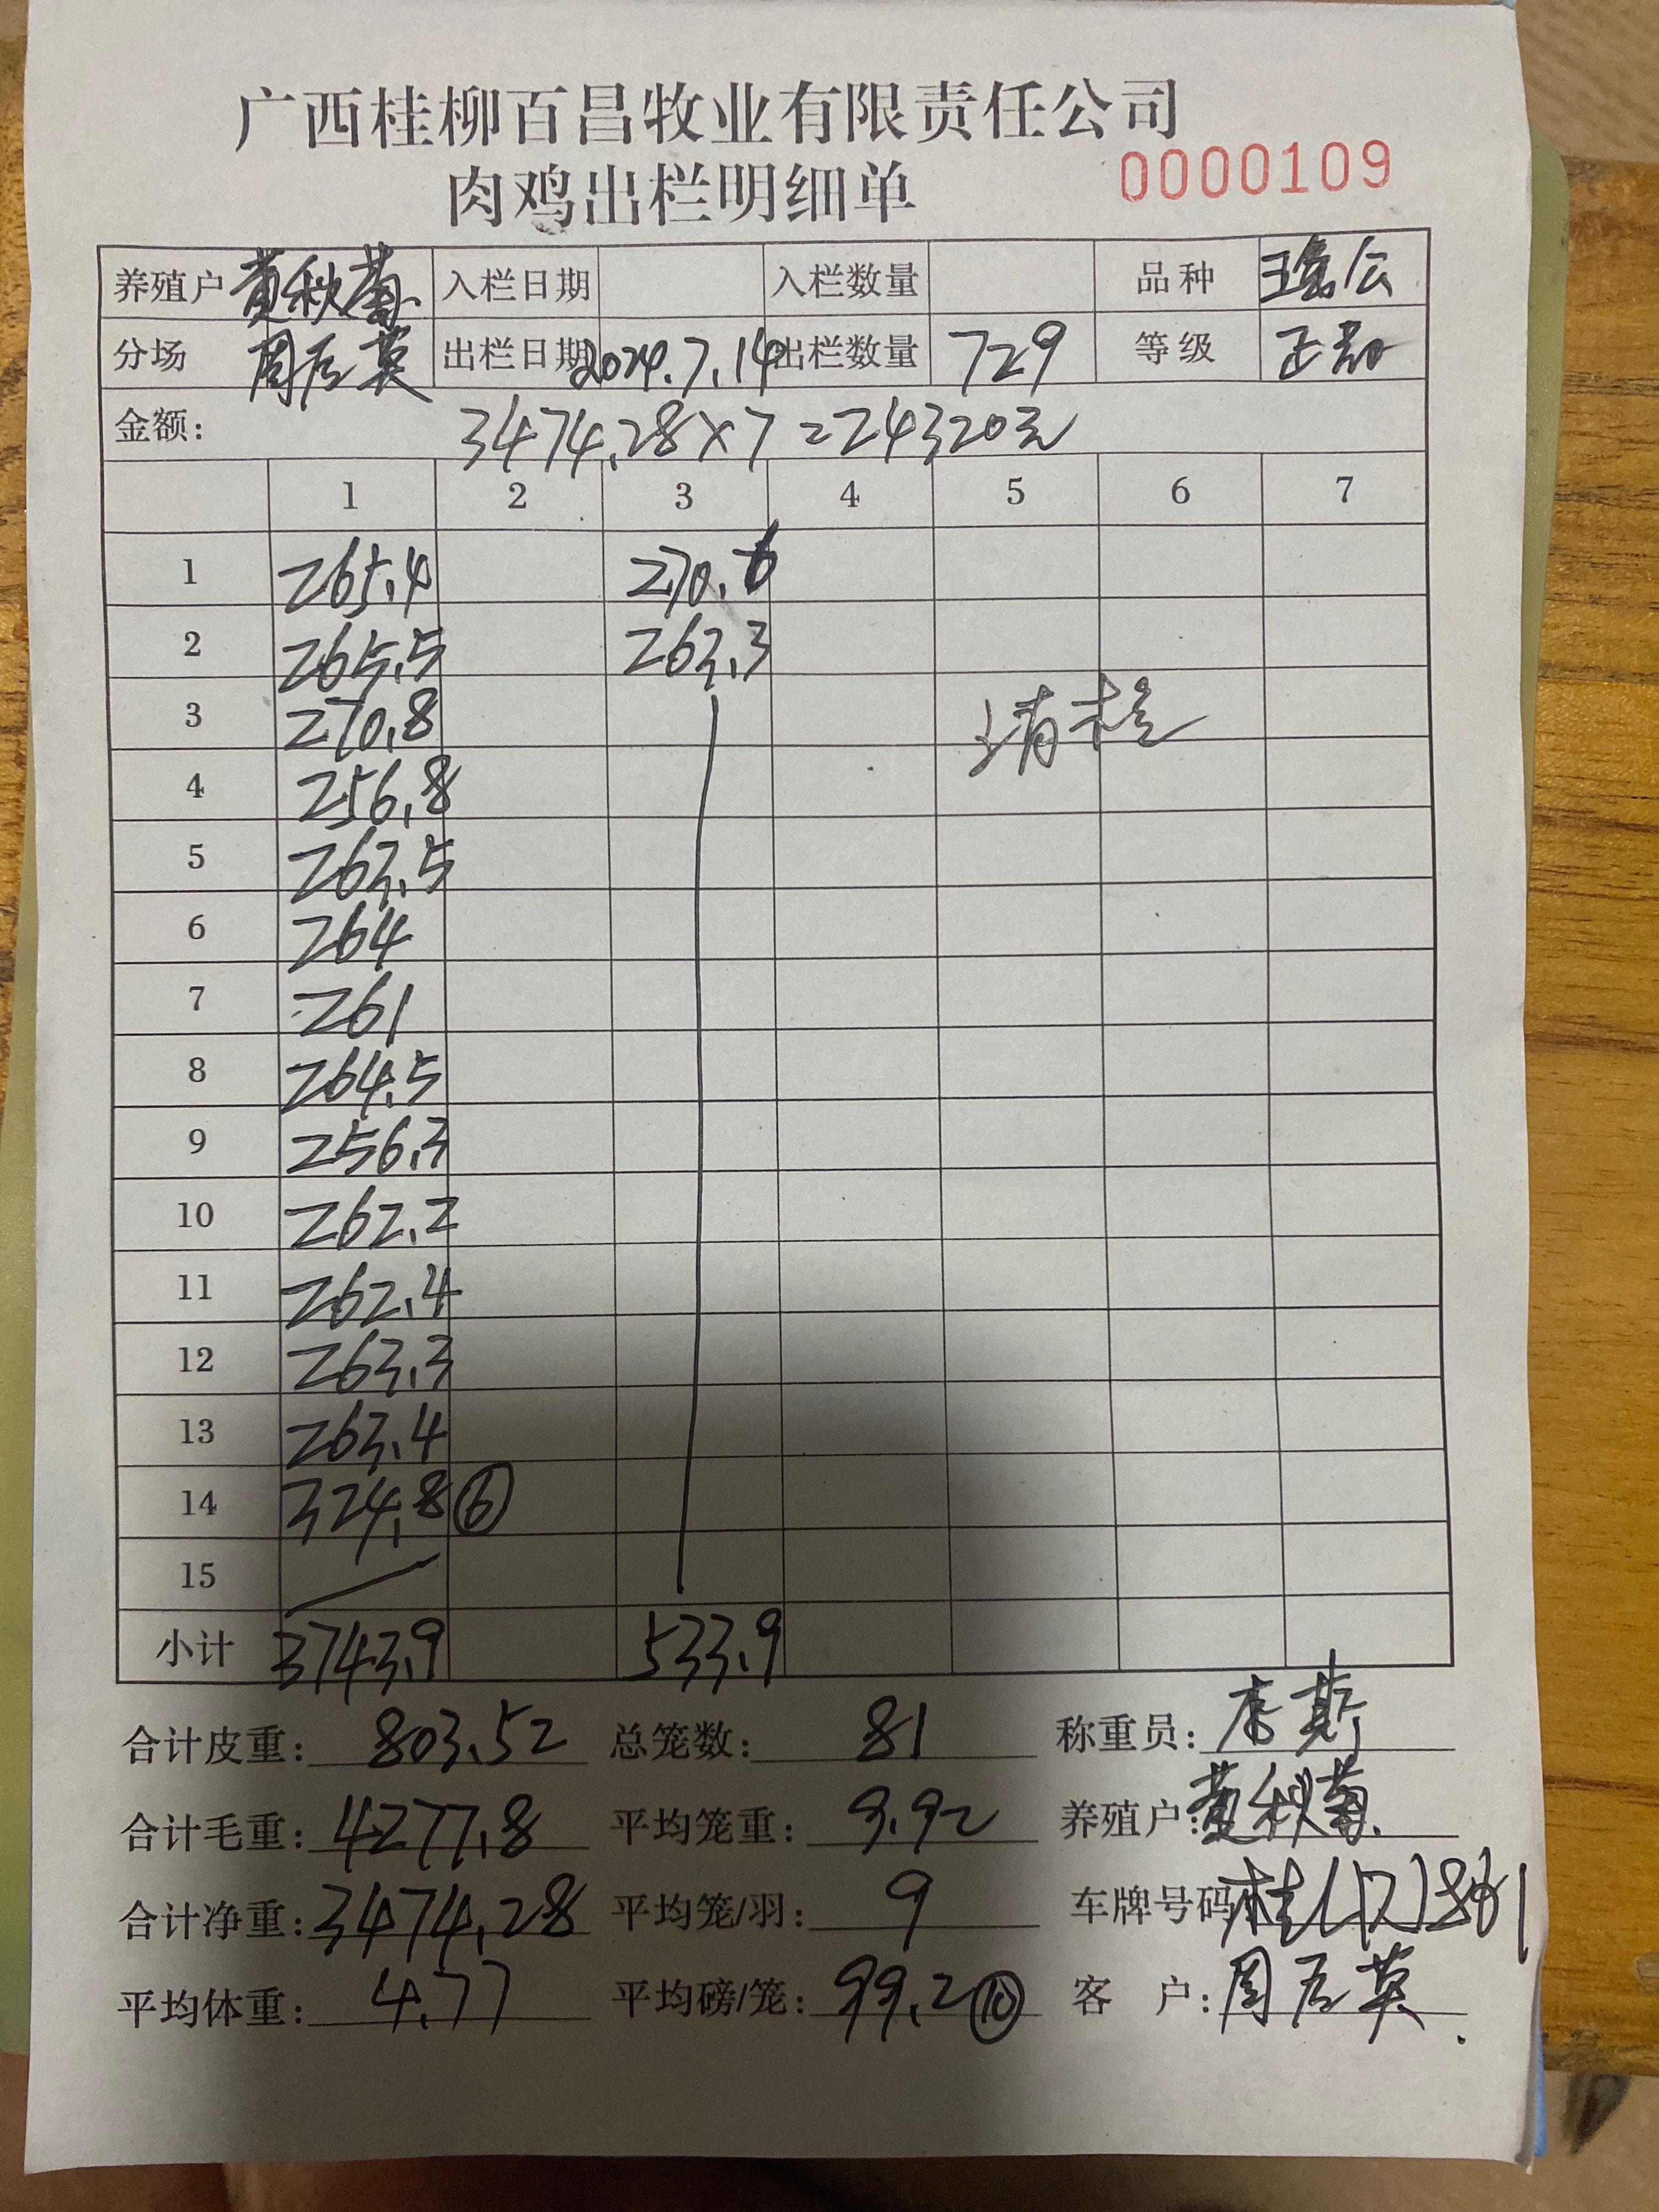 广西桂柳百昌牧业有限责任公司
肉鸡出栏明细单 0000109
养殖户 黄秋菊 入栏日期 入栏数量 品种 公
分场 周 英 出栏日期 2024.7.14 出栏数量 729 等级 正
金额: 3474.28×7=24320元
1 2 3 4 5 6 7
1 265.4 270.6
2 265.5 263.3
3 270.8
4 256.8
5 263.5
6 264
7 261
8 264.5
9 256.3
10 262.2
11 262.4
12 263.3
13 263.4
14 324.8 ⑥
15
小计 3743.9 533.9
合计皮重: 803.52 总笼数: 81 称重员:
合计毛重: 4277.8 平均笼重: 9.92 养殖户: 黄秋菊
合计净重: 3474.28 平均笼/羽: 9 车牌号码
平均体重: 4.77 平均磅/笼: 99.2 ⑩ 客 户: 周 英